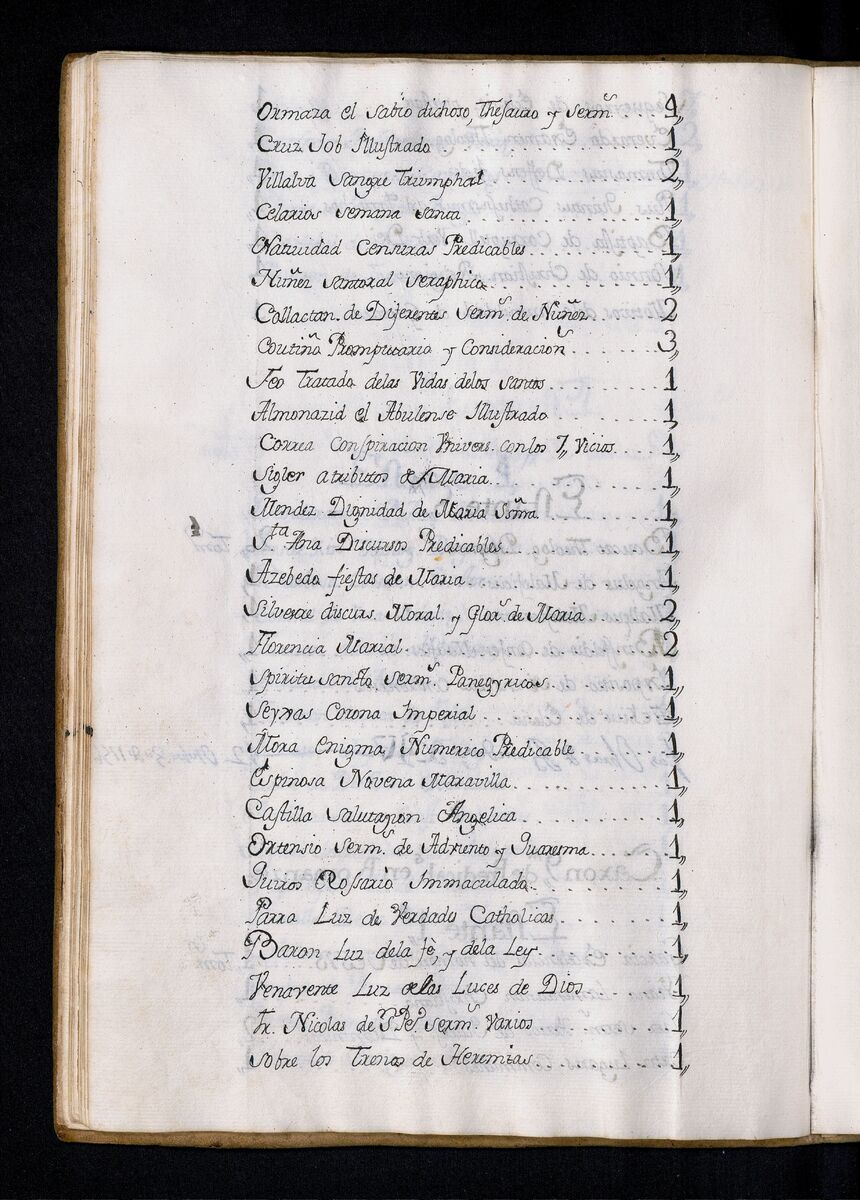 Ormaza el sabio dichoso, Thesauro y serm.ˢ .... 4,,
Cruz Job Illustrado .... 1,,
Villalva Sangre Triumphal .... 2,,
Celarios semana santa .... 1,,
Natividad Censuras Predicables .... 1,,
Nuñez santoral seraphico .... 1,,
Collactan. de Diferentes serm.ˢ de Nuñez .... 2
Coutiñ Promptuario y Consideracion.ˢ .... 3,,
Feo Tratado delas Vidas delos santos .... 1
Almonazid el Abulense Illustrado .... 1,
Correa Conspiracion Vnivers. con los 7,, Vicios .... 1,,
Sigler atributos de Maria .... 1,,
Mendez Dignidad de Maria Sñra .... 1,,
S.ᵗᵃ Ana Discursos Predicables .... 1,,
Azebedo fiestas de Maria .... 1,,
Silvere discurs. Moral. y Glor.ˢ de Maria .... 2,,
Florencia Marial .... 2
Spiritu sancto serm.ˢ Panegyricos .... 1,,
Seyxas Corona Imperial .... 1,,
Mora enigma Numerico Predicable .... 1,,
Espinosa Novena Maravilla .... 1,,
Castilla salutazion Angelica .... 1,,
Ortensio serm.ˢ de Adviento y Quaresma .... 1,,
Quiros Rossario Immaculado .... 1,,
Parra Luz de Verdads Catholicas .... 1,,
Baron Luz dela fè, y dela Ley .... 1,,
Venavente Luz delas Luces de Dios .... 1,,
Fr. Nicolas de serm.ˢ Varios .... 1,,
sobre los Trenos de Heremias .... 1,,